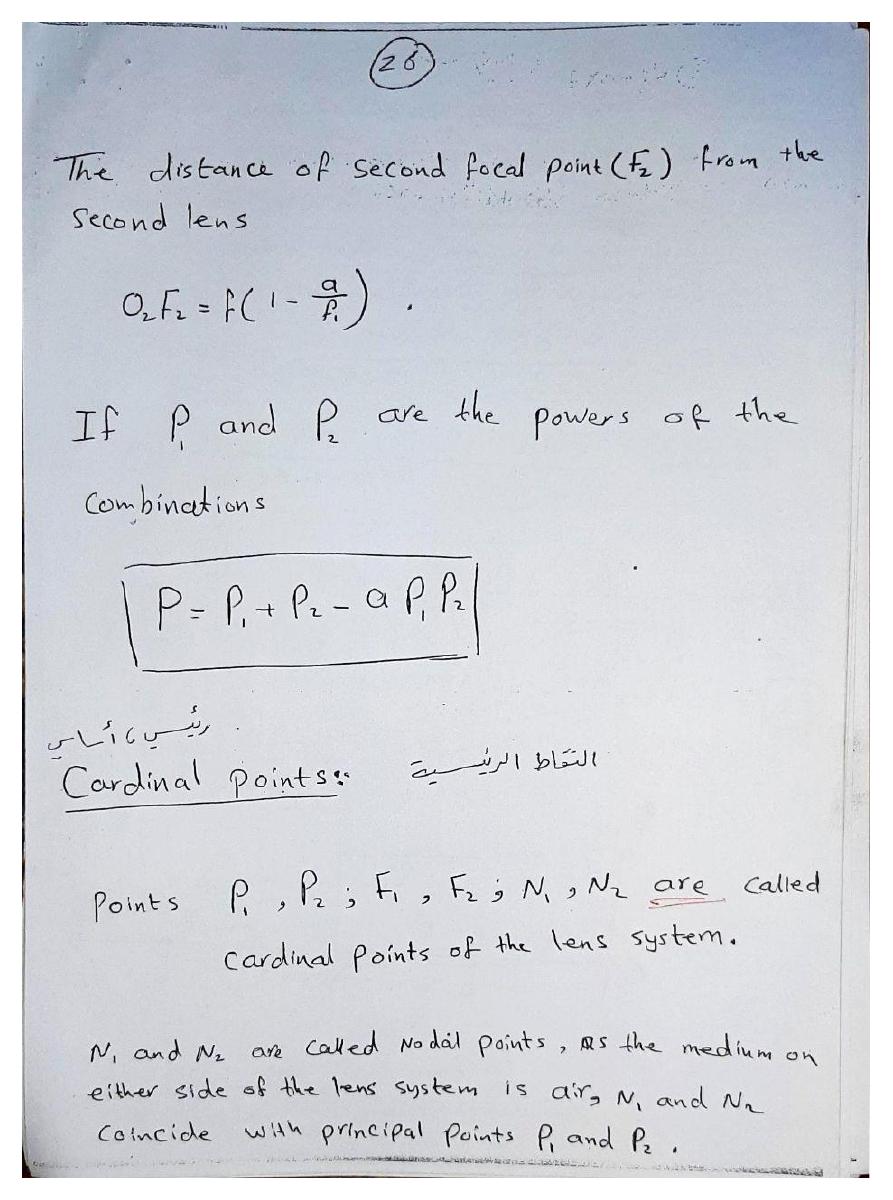 26
The distance of second focal point (F₂) from the
second lens
O₂F₂ = f(1 - a/f₁) .
If P₁ and P₂ are the powers of the
Combinations
P = P₁ + P₂ - a P₁ P₂
رئيسي، أساسي
Cardinal points:: النقاط الرئيسية
Points P₁ , P₂ ; F₁ , F₂ ; N₁ , N₂ are called
cardinal points of the lens system.
N₁ and N₂ are called Nodal points , as the medium on
either side of the lens system is air, N₁ and N₂
Coincide with principal points P₁ and P₂ .